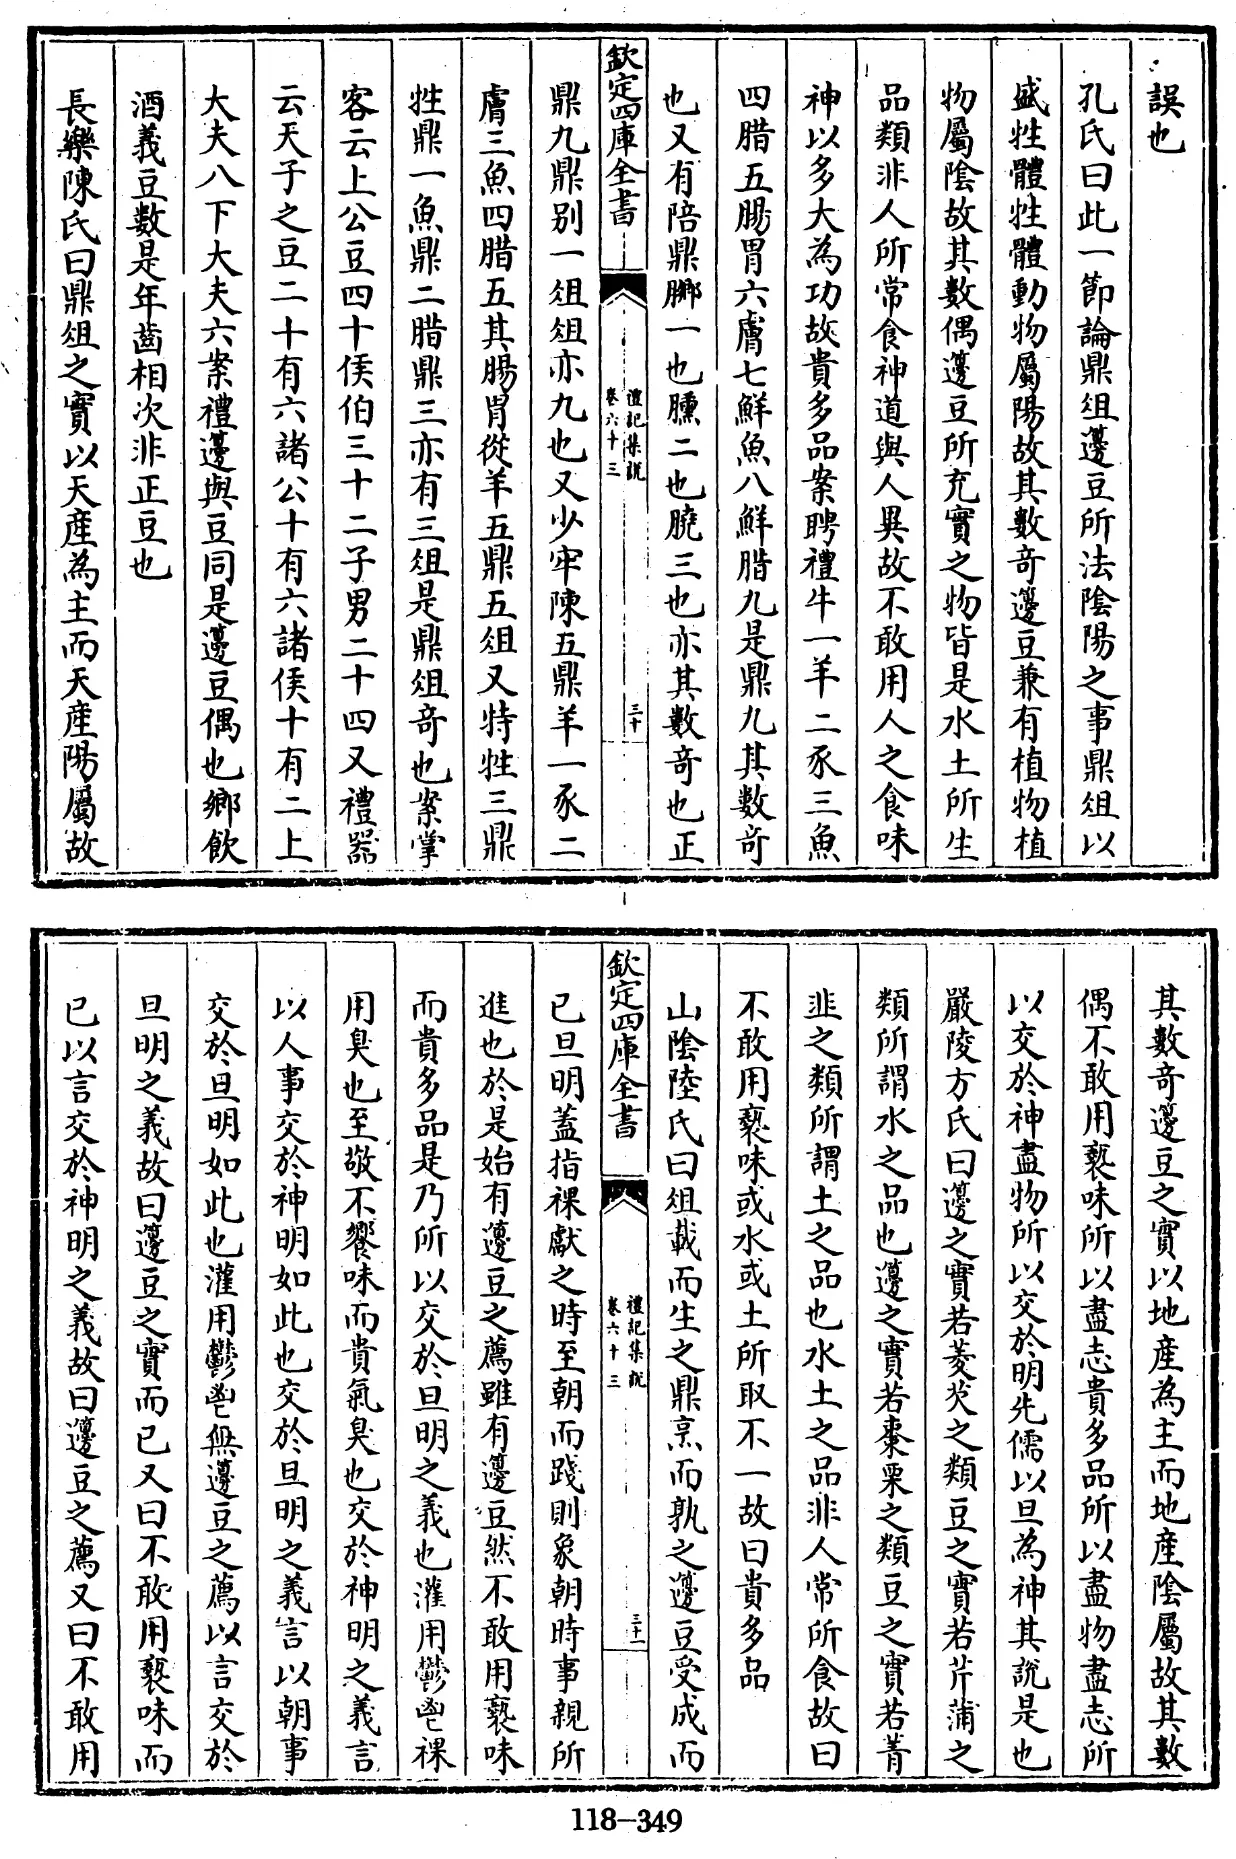 誤也
孔氏曰此一節論鼎俎籩豆所法陰陽之事鼎俎以
盛牲體牲體動物屬陽故其數奇籩豆兼有植物植
物屬陰故其數偶籩豆所充實之物皆是水土所生
品類非人所常食神道與人異故不敢用人之食味
神以多大為功故貴多品案聘禮牛一羊二豕三魚
四腊五腸胃六膚七鮮魚八鮮腊九是鼎九其數奇
也又有陪鼎膷一也臐二也膮三也亦其數奇也正
欽定四庫全書
禮記集說
卷六十三
三十
鼎九鼎别一俎俎亦九也又少牢陳五鼎羊一豕二
膚三魚四腊五其腸胃從羊五鼎五俎又特牲三鼎
牲鼎一魚鼎二腊鼎三亦有三俎是鼎俎奇也案掌
客云上公豆四十侯伯三十二子男二十四又禮器
云天子之豆二十有六諸公十有六諸侯十有二上
大夫八下大夫六案禮籩與豆同是籩豆偶也鄉飲
酒義豆數是年齒相次非正豆也
長樂陳氏曰鼎俎之實以天産為主而天産陽屬故
其數奇籩豆之實以地産為主而地産陰屬故其數
偶不敢用褻味所以盡志貴多品所以盡物盡志所
以交於神盡物所以交於明先儒以旦為神其說是也
嚴陵方氏曰籩之實若菱芡之類豆之實若芹蒲之
類所謂水之品也籩之實若棗栗之類豆之實若菁
韭之類所謂土之品也水土之品非人常所食故曰
不敢用褻味或水或土所取不一故曰貴多品
山陰陸氏曰俎載而生之鼎烹而孰之籩豆受成而
欽定四庫全書
禮記集說
卷六十三
三十一
已旦明蓋指祼獻之時至朝而踐則象朝時事親所
進也於是始有籩豆之薦雖有籩豆然不敢用褻味
而貴多品是乃所以交於旦明之義也灌用鬱鬯祼
用臭也至敬不饗味而貴氣臭也交於神明之義言
以人事交於神明如此也交於旦明之義言以朝事
交於旦明如此也灌用鬱鬯無籩豆之薦以言交於
旦明之義故曰籩豆之實而已又曰不敢用褻味而
已以言交於神明之義故曰籩豆之薦又曰不敢用
118-349